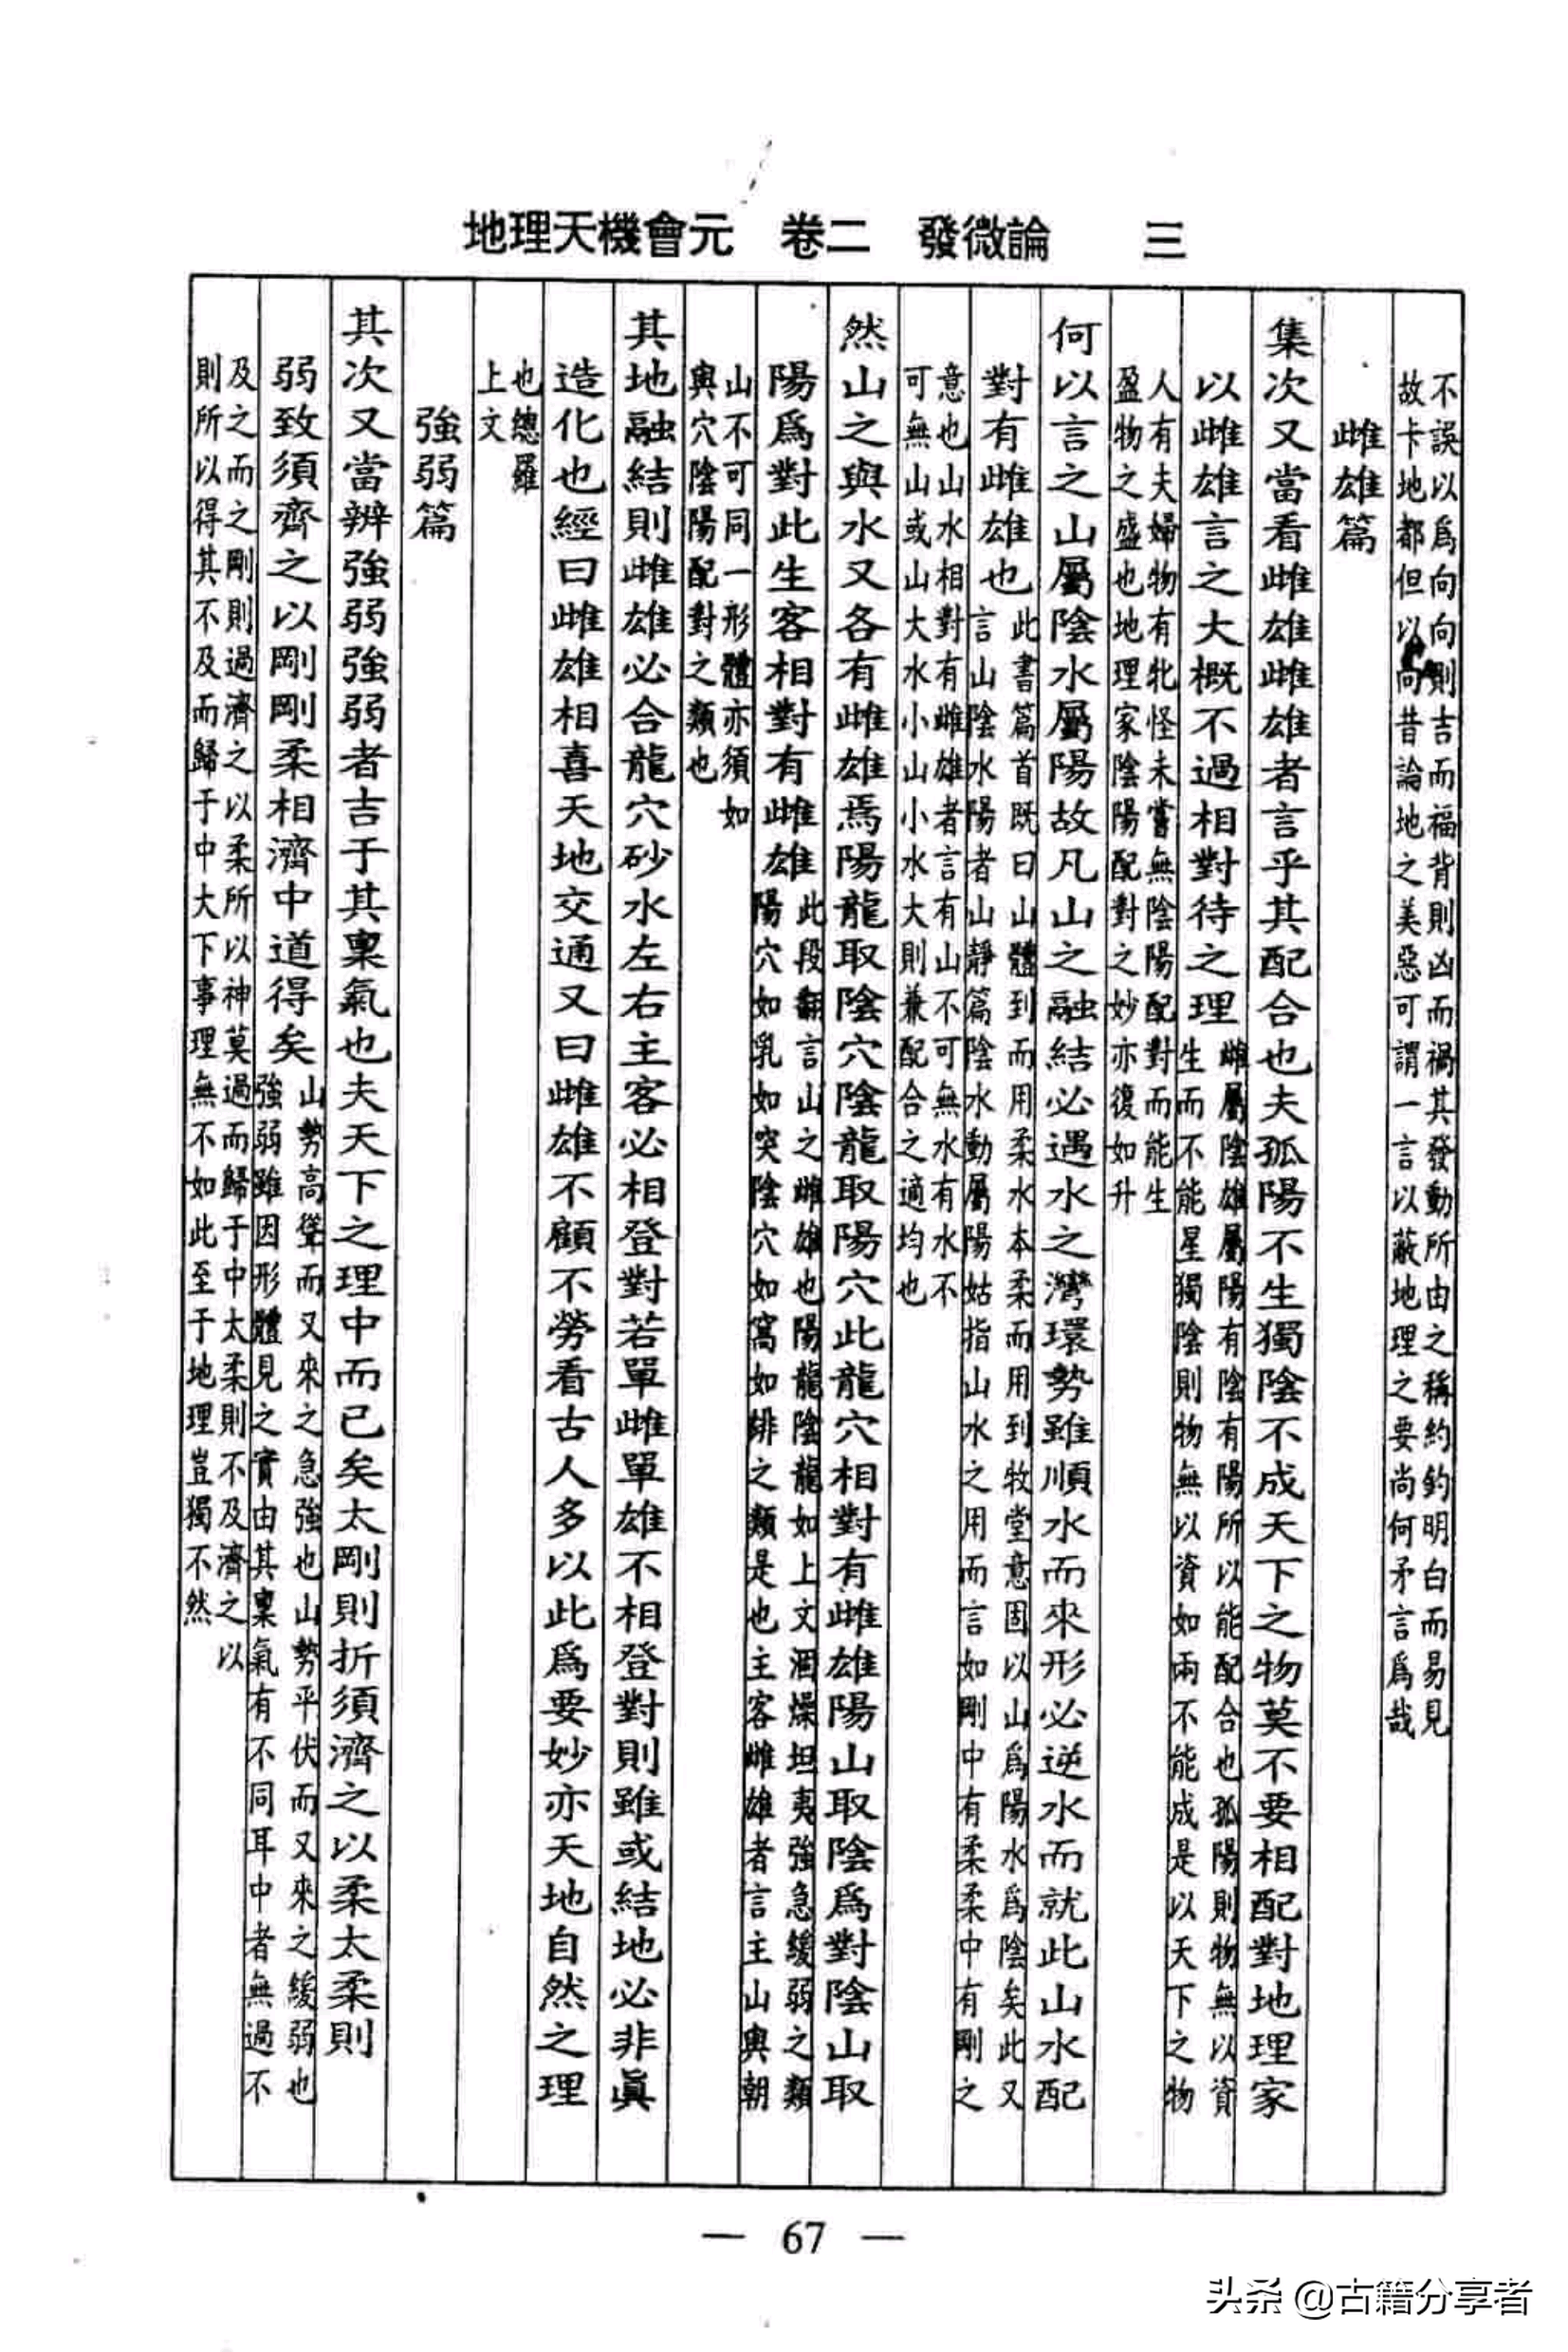 地理天機會元　卷二　發微論　三
不誤以爲向向則吉而福背則凶而禍其發動所由之稱約鈞明白而易見
故卡地都但以向昔論地之美惡可謂一言以蔽地理之要尚何矛言爲哉
雌雄篇
集次又當看雌雄雌雄者言乎其配合也夫孤陽不生獨陰不成天下之物莫不要相配對地理家
以雌雄言之大概不過相對待之理
雌屬陰雄屬陽有陰有陽所以能配合也孤陽則物無以資
生而不能星獨陰則物無以資如兩不能成是以天下之物
人有夫婦物有牝怪未嘗無陰陽配對而能生
盈物之盛也地理家陰陽配對之妙亦復如升
何以言之山屬陰水屬陽故凡山之融結必遇水之灣環勢雖順水而來形必逆水而就此山水配
對有雌雄也
此書篇首既曰山體到而用柔水本柔而用到牧堂意固以山爲陽水爲陰矣此又
言山陰水陽者山靜篇陰水動屬陽姑指山水之用而言如剛中有柔柔中有剛之
意也山水相對有雌雄者言有山不可無水有水不
可無山或山大水小山小水大則兼配合之適均也
然山之與水又各有雌雄焉陽龍取陰穴陰龍取陽穴此龍穴相對有雌雄陽山取陰爲對陰山取
陽爲對此生客相對有雌雄
此段翻言山之雌雄也陽龍陰龍如上文涸燥坦夷強急緩弱之類
陽穴如乳如突陰穴如窩如緋之類是也主客雌雄者言主山輿朝
山不可同一形體亦須如
輿穴陰陽配對之類也
其地融結則雌雄必合龍穴砂水左右主客必相登對若單雌單雄不相登對則雖或結地必非眞
造化也經曰雌雄相喜天地交通又曰雌雄不顧不勞看古人多以此爲要妙亦天地自然之理
也總羅
上文
強弱篇
其次又當辨強弱強弱者吉于其稟氣也夫天下之理中而已矣太剛則折須濟之以柔太柔則
弱致須齊之以剛剛柔相濟中道得矣
山勢高聳而又來之急強也山勢平伏而又來之緩弱也
強弱雖因形體見之實由其稟氣有不同耳中者無過不
及之而之剛則過濟之以柔所以神莫過而歸于中太柔則不及濟之以
則所以得其不及而歸于中大下事理無不如此至于地理豈獨不然
— 67 —
头条 @古籍分享者